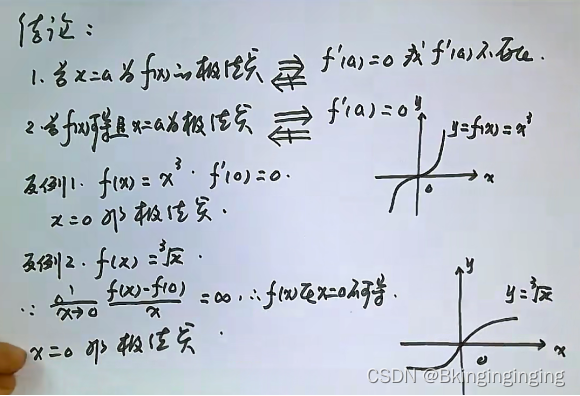 结论：
1. 若 x=a 为 f(x) 的极值点 ⇏⇒ f'(a)=0 或 f'(a) 不存在.
2. 若 f(x) 可导且 x=a 为极值点 ⇒ f'(a)=0
y
y=f(x)=x³
0
x
反例1. f(x)=x³. f'(0)=0.
x=0 非极值点.
反例2. f(x)=∛x.
∵ x→0 f(x)-f(0) / x = ∞, ∴ f(x) 在 x=0 不可导.
y
y=∛x
0
x
x=0 非极值点
CSDN @Bkinginginging